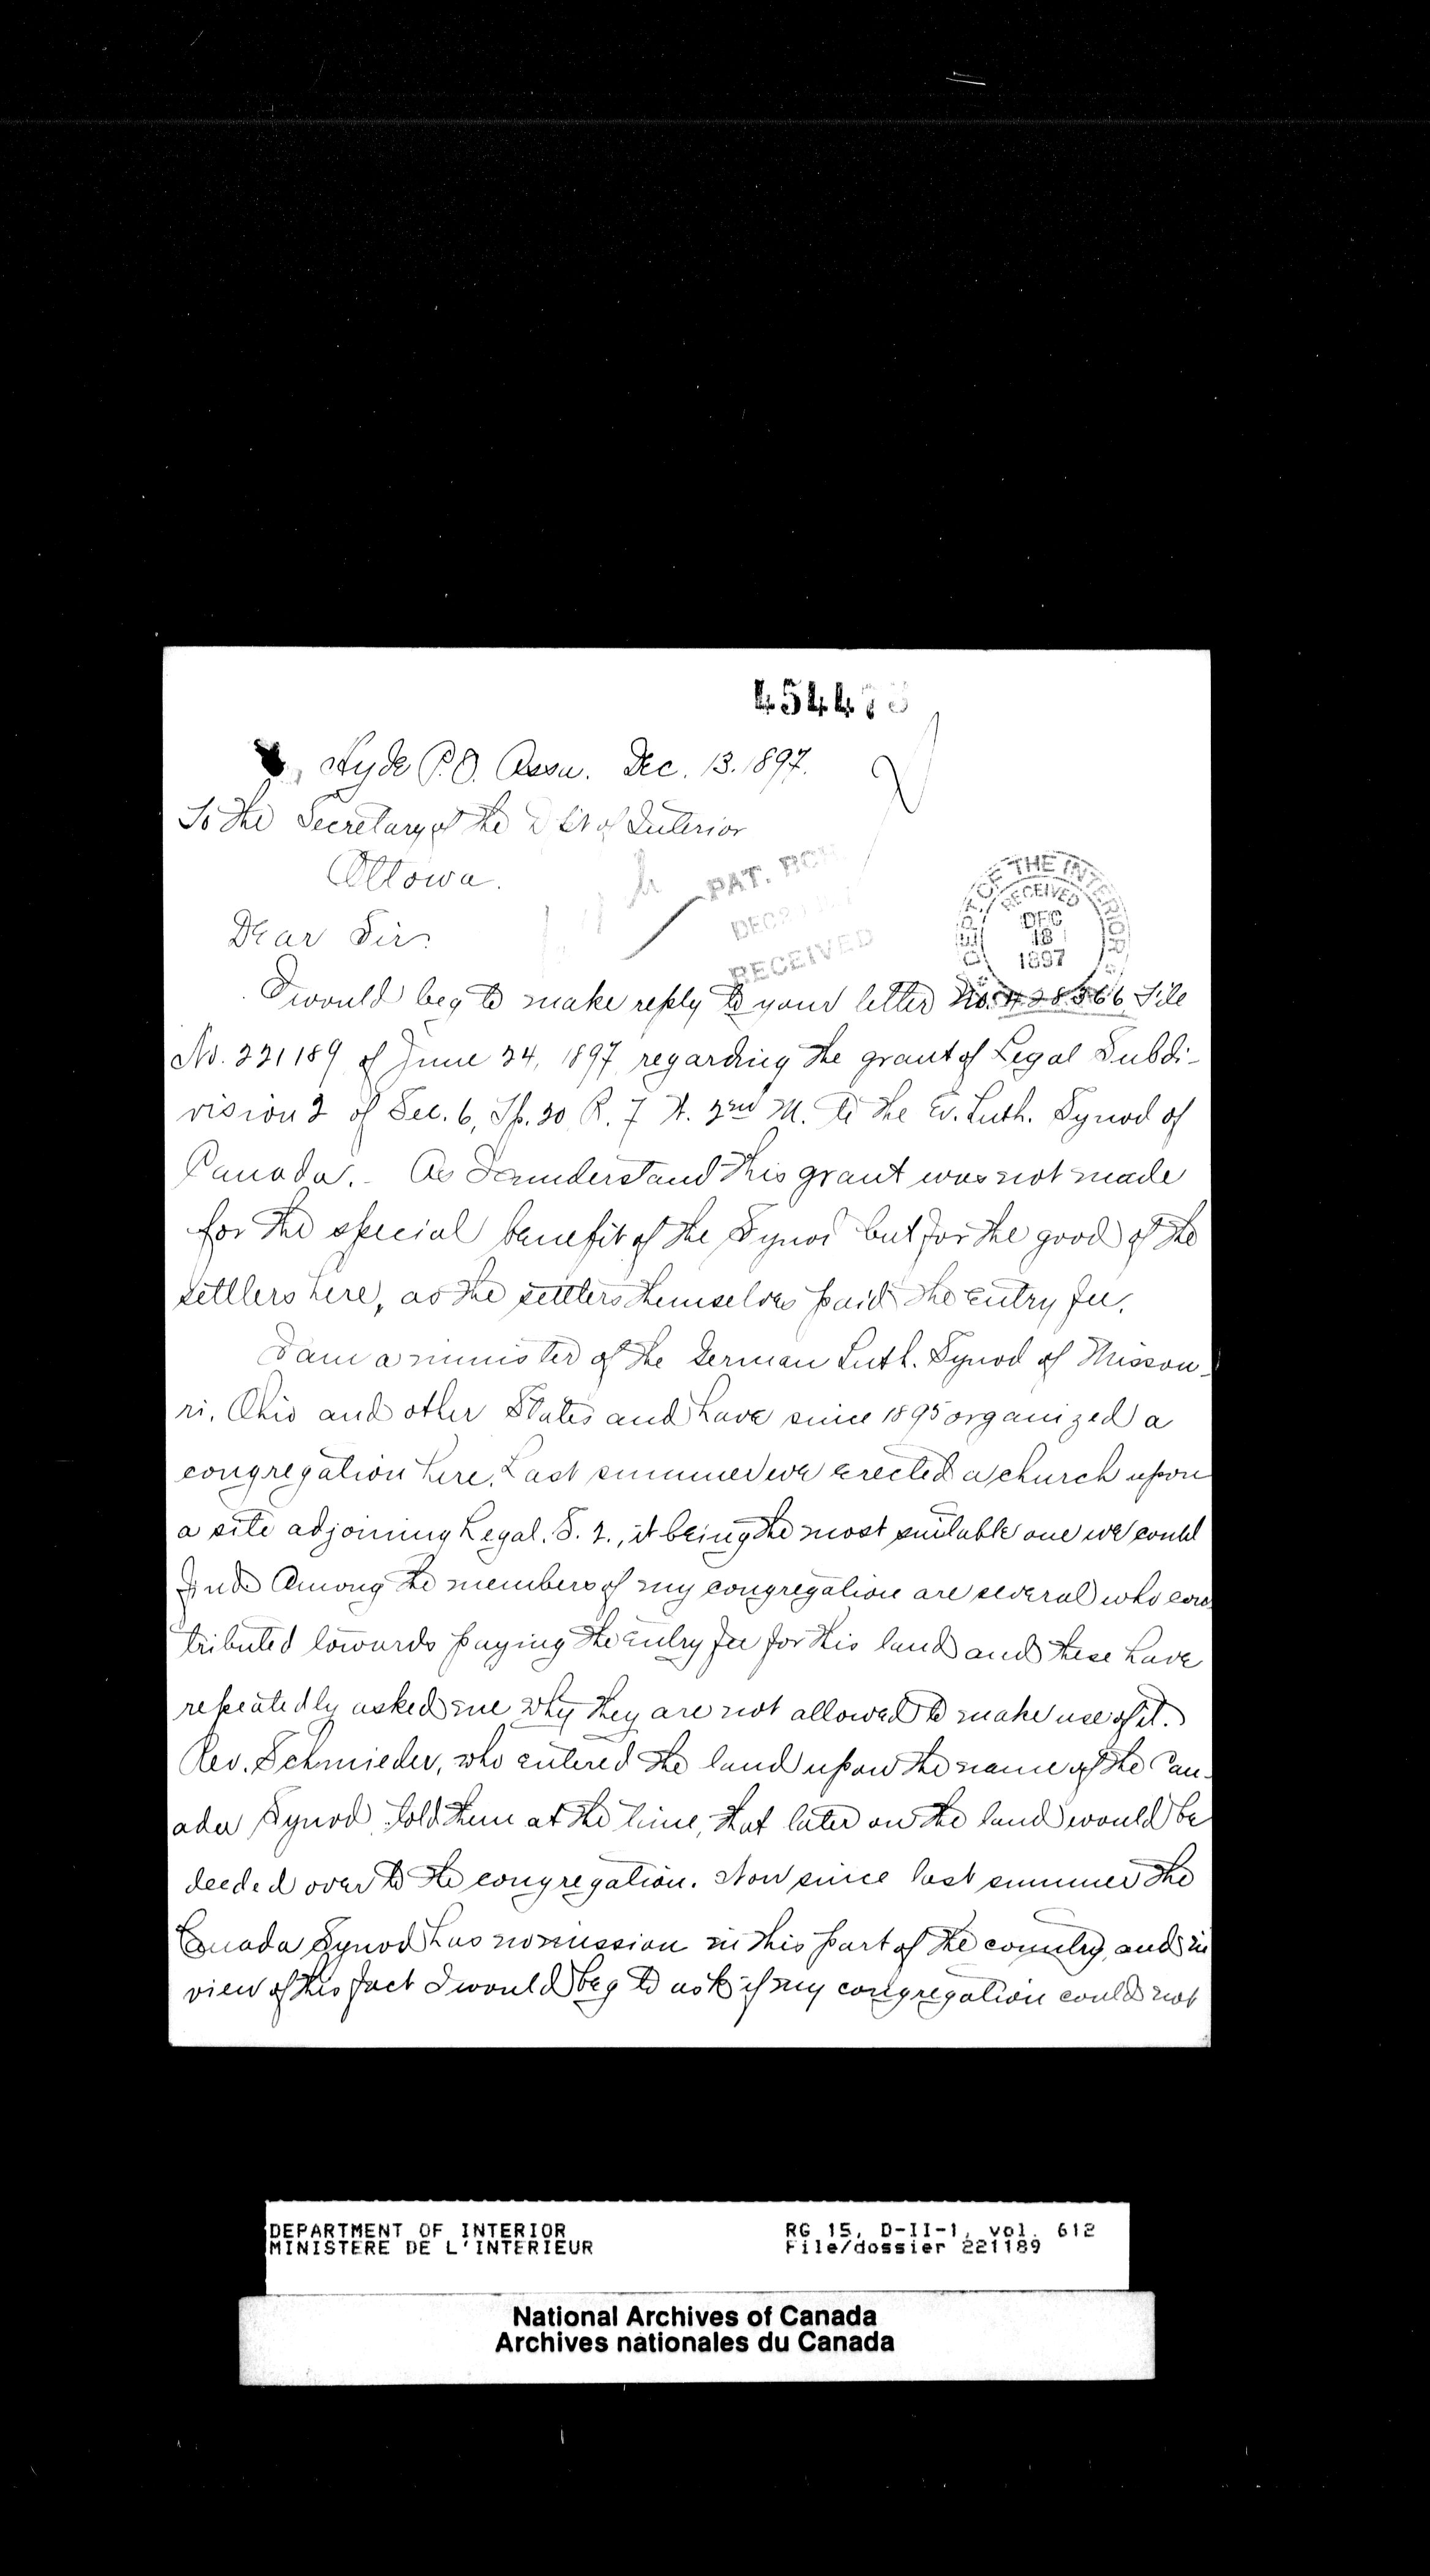 4544
Hyde P.O. Assa. Dec. 13. 1897.
To the Secretary of the Dpt of Interior
Ottowa.
PAT. BCH.
DEC
RECEIVED
DEPT OF THE INTERIOR
RECEIVED
DEC
18
1897
Dear Sir:
I would beg to make reply to your letter No. 428566 File
No. 221189 of June 24, 1897 regarding the grant of Legal Subdi-
vision 2 of Sec. 6, Tp. 20 R. 7 W. 2nd M. to the Ev. Luth. Synod of
Canada. - As I understand this grant was not made
for the special benefit of the Synod but for the good of the
settlers here, as the settlers themselves paid the entry fee.
I am a minister of the German Luth. Synod of Missou-
ri, Ohio and other States and have since 1895 organized a
congregation here. Last summer we erected a church upon
a site adjoining Legal. S. 2., it being the most suitable one we could
find. Among the members of my congregation are several who con-
tributed towards paying the entry fee for this land and these have
repeatedly asked me why they are not allowed to make use of it.
Rev. Schmieder, who entered the land upon the name of the Can-
ada Synod, told them at the time, that later on the land would be
deeded over to the congregation. Now since last summer the
Canada Synod has no mission in this part of the country, and in
view of this fact I would beg to ask if my congregation could not
DEPARTMENT OF INTERIOR
MINISTERE DE L'INTERIEUR
RG 15, D-II-1, vol. 612
File/dossier 221189
National Archives of Canada
Archives nationales du Canada